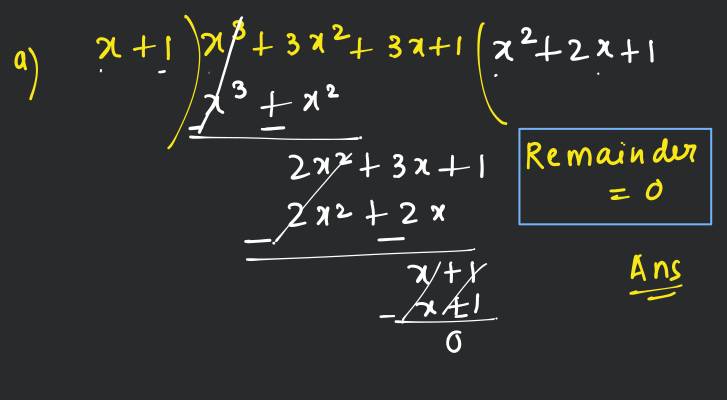 a) x + 1 ) x³ + 3x² + 3x + 1 ( x² + 2x + 1
x³ + x²
− −
2x² + 3x + 1
2x² + 2x
− −
x + 1
- x + 1
0
Remainder
= 0
Ans